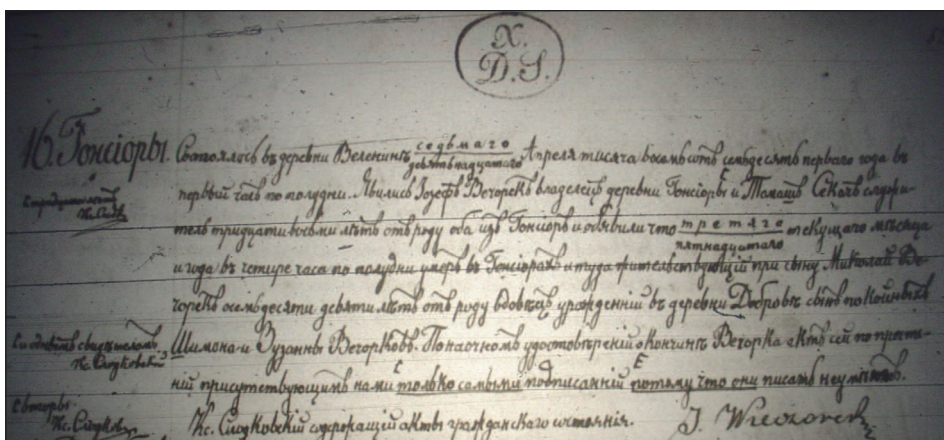 X.
D. S.
16. Гонсіоры. Состоялось въ деревни Веленинъ седьмаго
девятьнадцатаго Апреля тисяча восемьсотъ семьдесятъ перваго года въ
первый часъ по полудни. Явились Іозефъ Вечорекъ владелецъ деревни Гонсіоры и Томашъ служи-
тель тридцати восьми лѣтъ отъ роду оба изъ Гонсіоръ и обявили что третяго
пятнадцатаго текущаго мѣсяца
и года въ четире часа по полудни умеръ въ Гонсіорахъ и туда жительствующій при сыну Миколай Ве-
чорекъ осемьдесяти девяти лѣтъ отъ роду вдовецъ урожденній въ деревни Добровъ сынъ покойныхъ
Шимона и Зузанны Вечорковъ. По наочномъ удостовѣреніи о кончинѣ Вечорка актъ сей по прочта-
ній присутствующимъ нами только самыми подписанній потому что они писать неумѣютъ.
Кс. содержащій акты гражданскаго состоянія. J. Wieczorek